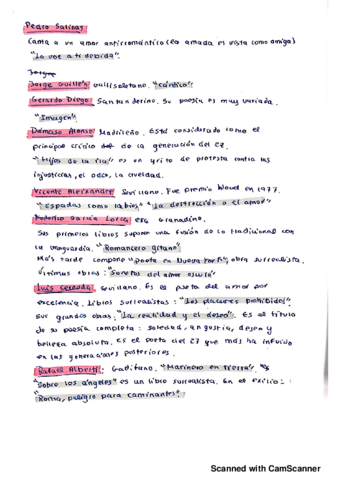 Pedro Salinas
Canta a un amor antirromántico (la amada es vista como amiga)
"La voz a ti debida".
Jorge
Jorge Guillén vallisoletano. "cántico"
Gerardo Diego Santanderino. Su poesía es muy variada.
"Imagen".
Dámaso Alonso Madrileño. Está considerado como el
principal crítico de la generación del 27.
"Hijos de la ira" es un grito de protesta contra las
injusticias, el odio, la crueldad.
Vicente Aleixandre Sevillano. Fue premio Nobel en 1977.
"Espadas como labios," "La destrucción o el amor"
Federico García Lorca era Granadino.
Sus primeros libros suponen una fusión de lo tradicional con
la vanguardia. "Romancero gitano"
Más tarde compone "poeta en Nueva York", obra surrealista.
Últimas obras: "Sonetos del amor oscuro"
Luis Cernuda, sevillano. Es el poeta del amor por
excelencia. Libros surrealistas: "Los placeres prohibidos"
sus grandes obras: "La realidad y el deseo". Es el título
de su poesía completa: soledad, angustia, deseo y
belleza absoluta. Es el poeta del 27 que más ha influido
en las generaciones posteriores.
Rafael Alberti: Gaditano. "Marinero en tierra".
"Sobre los ángeles" es un libro surrealista. En el exilio:
"Roma, peligro para caminantes".
Scanned with CamScanner